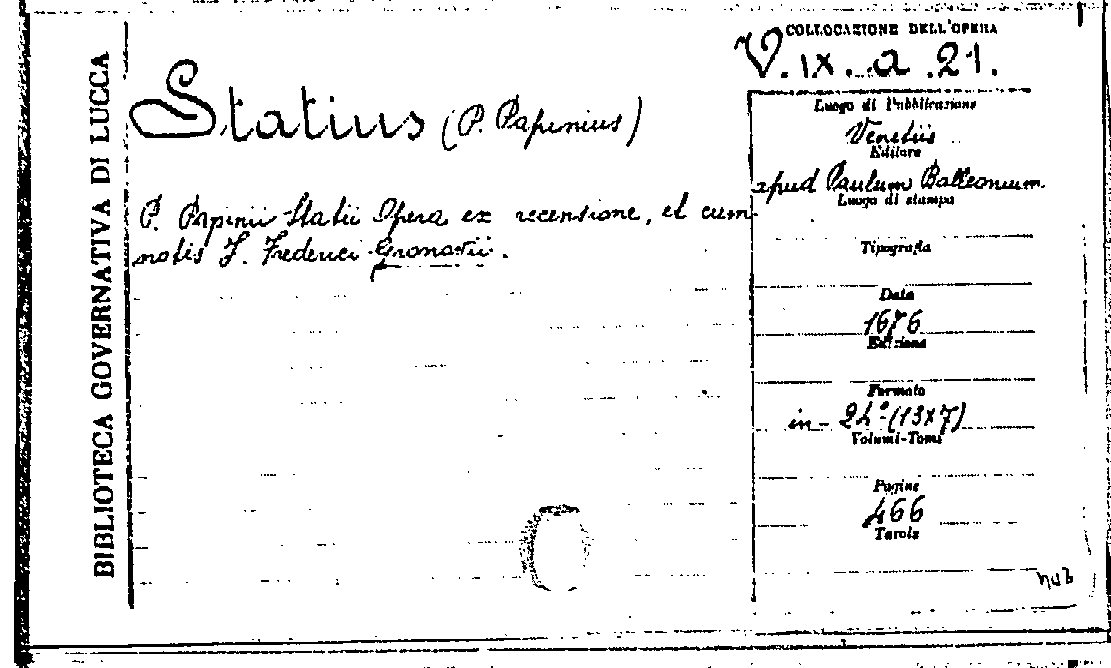 BIBLIOTECA GOVERNATIVA DI LUCCA
Statius (P. Papinius)
P. Papinii Statii Opera ex recensione, et cum
notis J. Federici Gronovii.
COLLOCAZIONE DELL'OPERA
V. IX. a. 21.
Luogo di Pubblicazione
Venetiis
Editore
apud Paulum Balleonium
Luogo di stampa
Tipografia
Data
1676
Edizione
Formato
in-24° (13x7)
Volumi-Tomi
Pagine
466
Tavole